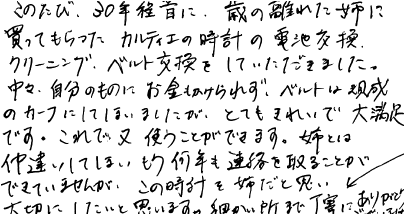 このたび、30年程前に、歳の離れた姉に
買ってもらった カルティエの時計の電池交換、
クリーニング、ベルト交換をしていただきました。
中々、自分のものに お金もかけられず、ベルトは既成
のカーフにしてしまいましたが、とてもきれいで 大満足
です。これで又 使うことができます。姉とは
仲違いしてしまい もう何年も 連絡を取ることが
できていませんが、この時計を 姉だと思い、
大切にしたいと思います。細かい所まで丁寧に ありがとう